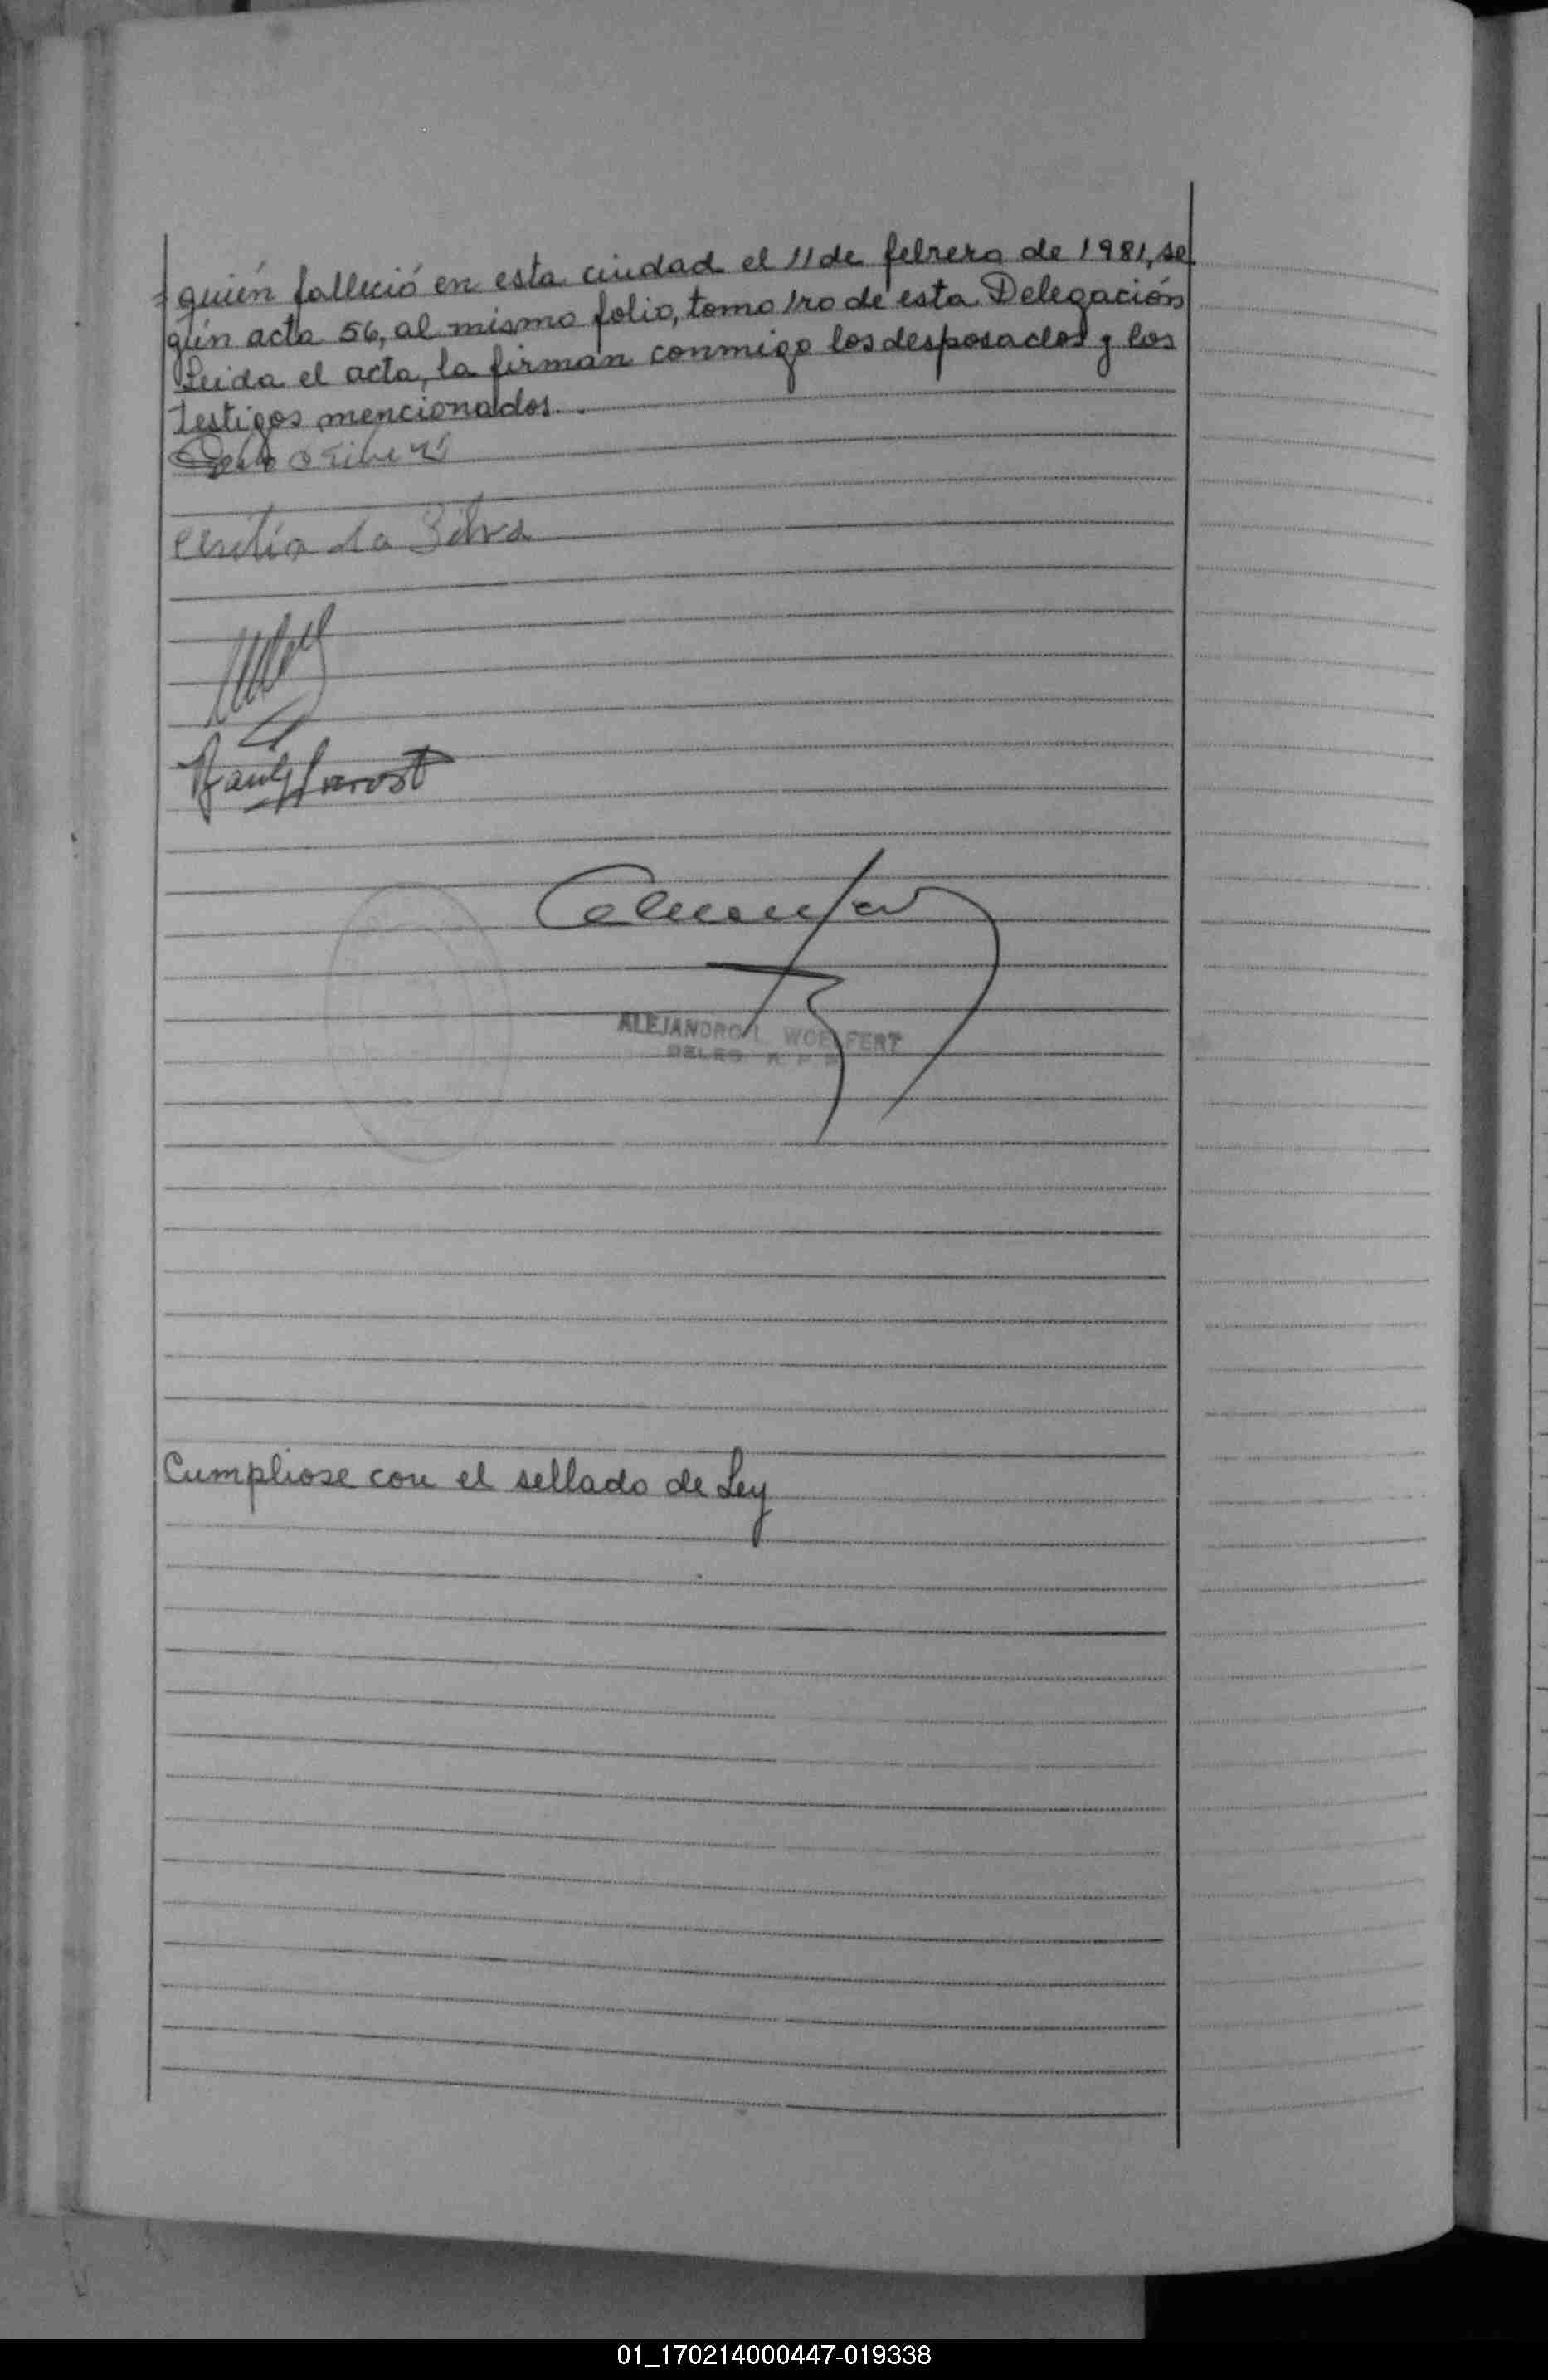 quién falleció en esta ciudad el 11 de febrero de 1981, se
gún acta 56, al mismo folio, tomo 1ro de esta Delegación
Leida el acta, la firman conmigo los desposados y los
testigos mencionados.
da Silva
ALEJANDRO WOELFERT
DELEG
Cumpliose con el sellado de Ley
01_170214000447-019338